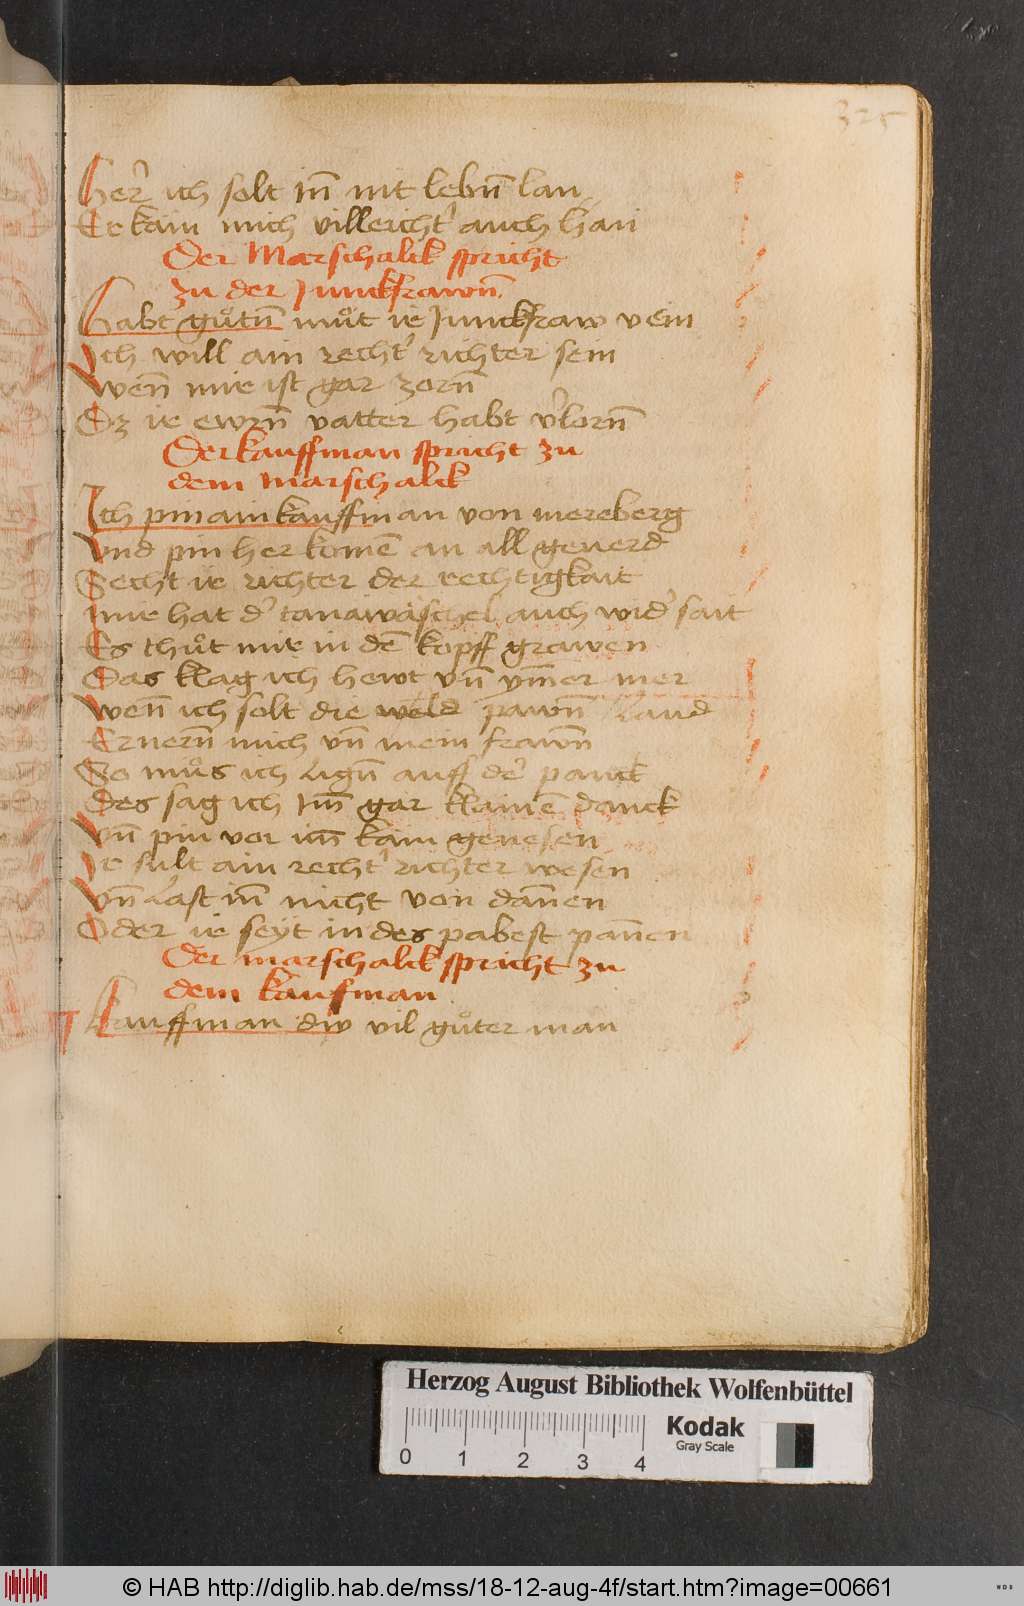 325
Her̄ ich solt in̄ nit lebn̄ lan
Er kām mich villeicht' auch han
Der Marschalck spricht
zu der Junckfrawn̄
Habt gůtn̄ můt ir Junckfraw vein
Ich will ain recht' richter sein
Wen̄ mir ist gar zorn̄
Dz ir ewrn̄ vatter habt v'lorn̄
Der kauffman spricht zu
dem marschalck
Ich pin ain kauffman von mereberg
Vnd pin her kumē an all geuerd
Secht ir richter der rechtigkait
mir hat d' tanawäschel auch wid' sait
Es thůt mir in dē kopff grawen
Das klag ich hewt vn̄ ym̄er mer
Wen̄ ich solt die weld pawn̄ land
Ernern̄ mich vn̄ mein frawn̄
So můs ich lign̄ auff der̄ panck
des sag ich Im̄ gar klainē danck
Vn̄ pin vor im̄ kam genesen
Ir sult ain recht' richter wesen
Vn̄ last in̄ nicht von dan̄en
Oder ir seyt in des pabest pan̄en
Der marschalck spricht zu
dem kaufman
Kauffman dw vil gůter man
Herzog August Bibliothek Wolfenbüttel
Kodak
Gray Scale
0 1 2 3 4
© HAB http://diglib.hab.de/mss/18-12-aug-4f/start.htm?image=00661